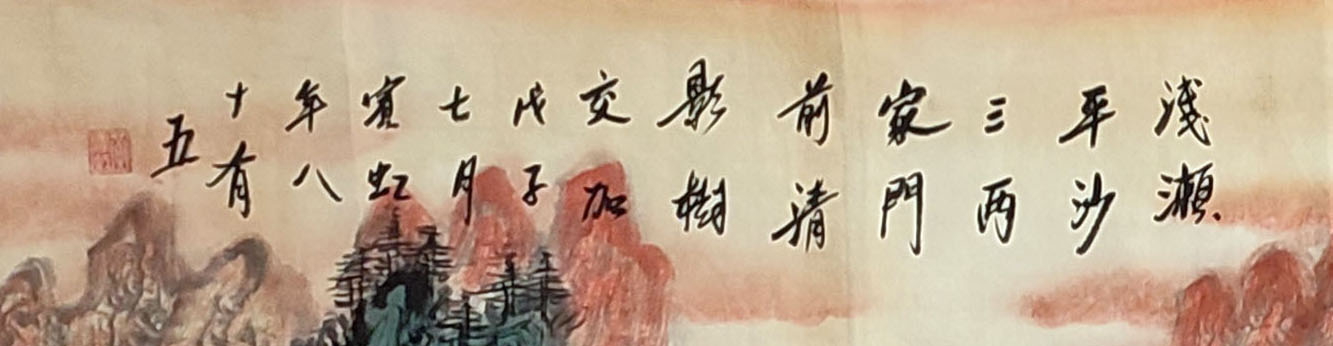 淺瀨
平沙
三兩
家門
前清
影樹
交加
戊子
七月
賓虹
年八
十有
五